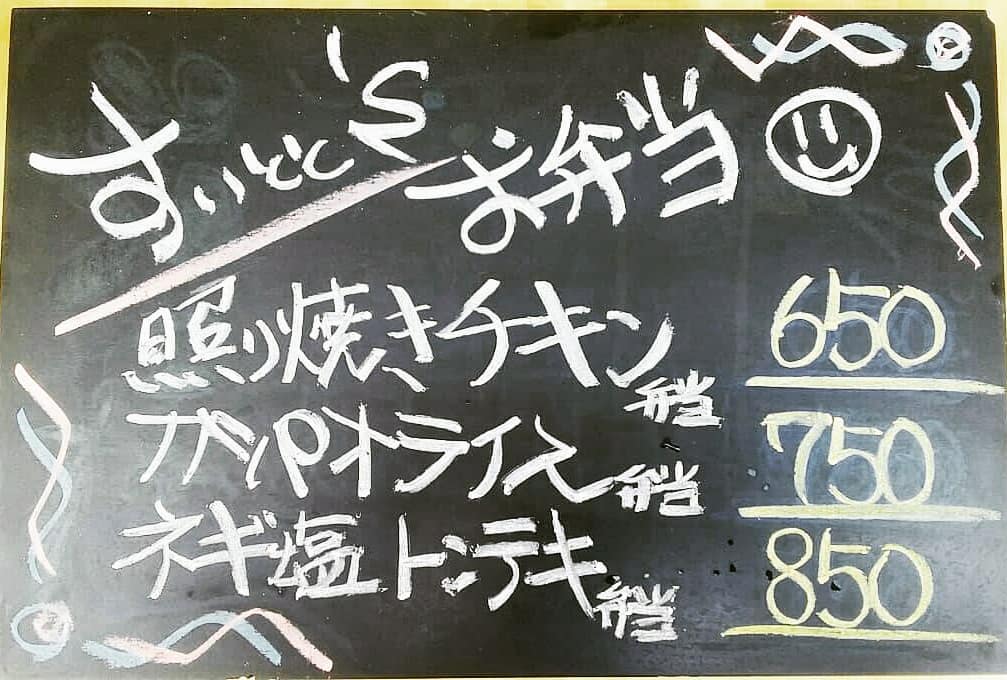 すいとと'S お弁当
照り焼きチキン弁当 650
ガパオライス弁当 750
ネギ塩トンテキ弁当 850